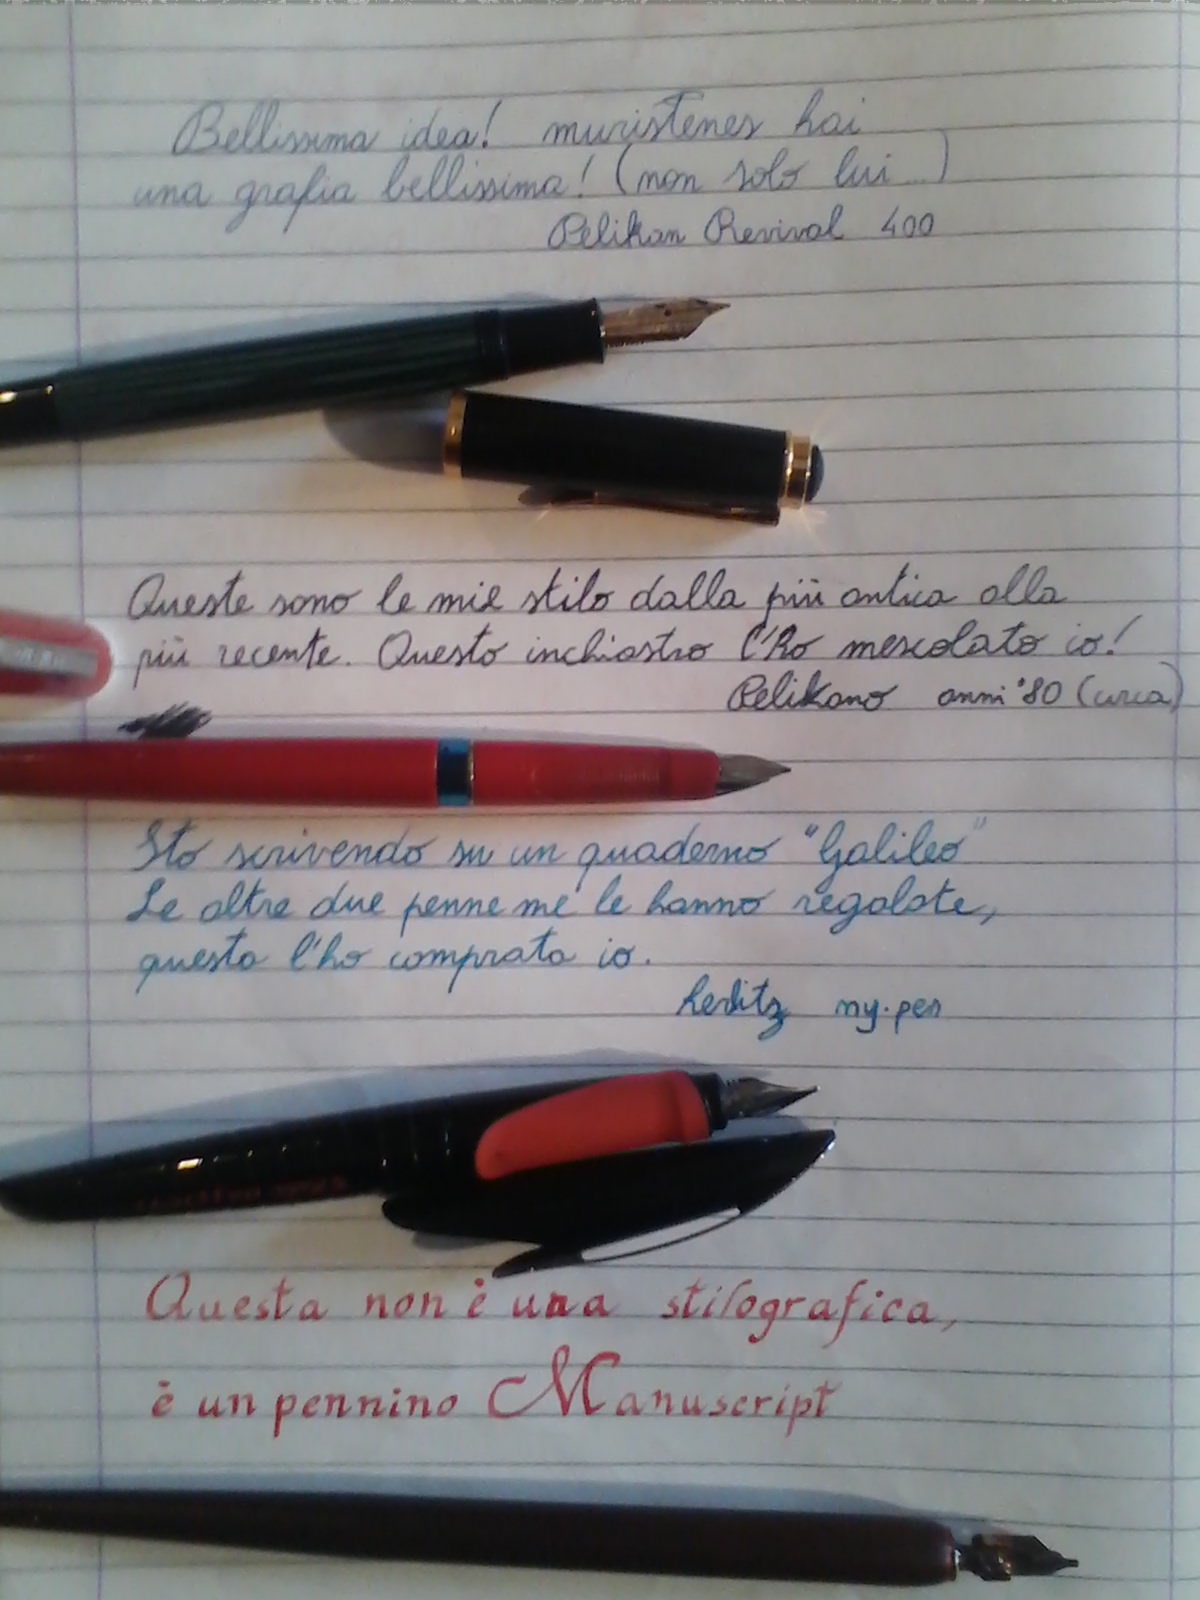 Bellissima idea! muristenes hai
una grafia bellissima! (non solo lui...)
Pelikan Revival 400
Queste sono le mie stilo dalla più antica alla
più recente. Questo inchiostro l'ho mescolato io!
Pelikano anni '80 (circa)
Sto scrivendo su un quaderno "Galileo"
Le altre due penne me le hanno regalate,
questa l'ho comprata io.
herlitz my.pen
Questa non è una stilografica,
è un pennino Manuscript